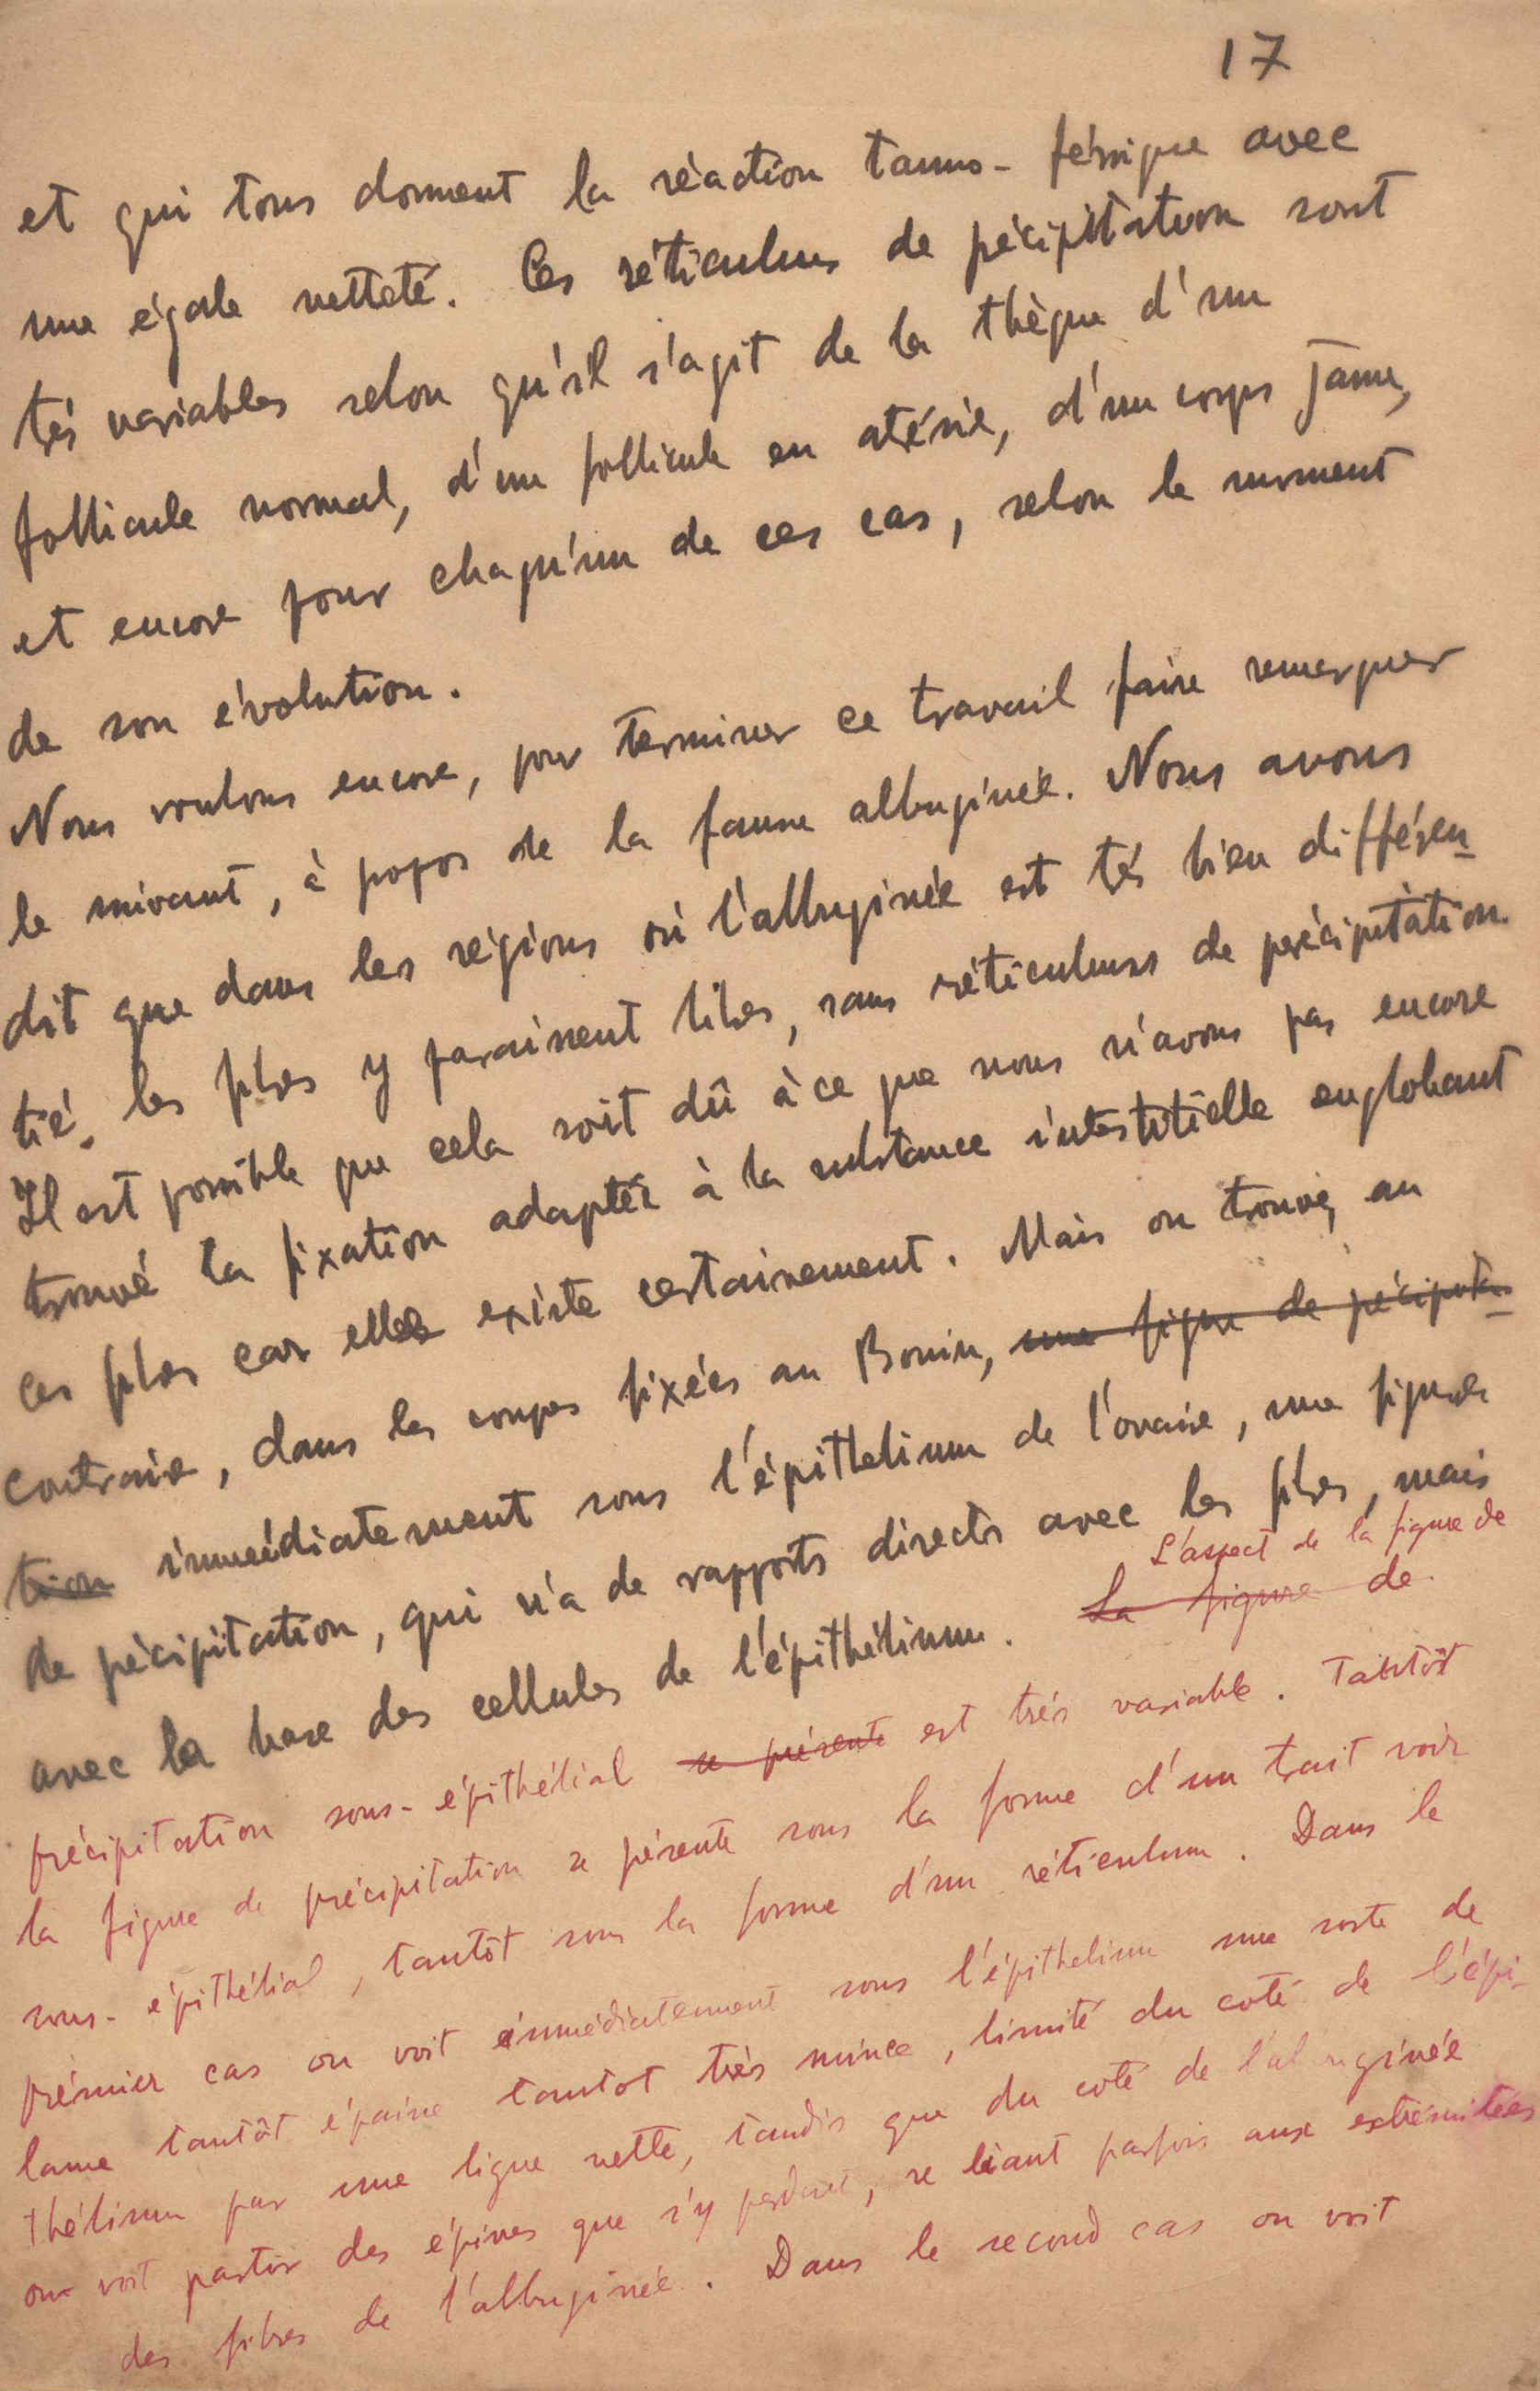 17
et qui tous donnent la réaction tanno-férrique avec
une égale netteté. Ces réticulums de précipitation sont
très variables selon qu'il s'agit de la thèque d'un
follicule normal, d'un follicule en atrésie, d'un corps jaune,
et encore pour chaqu'un de ces cas, selon le moment
de son évolution.
Nous voulons encore, pour terminer ce travail faire remarquer
le suivant, à propos de la fausse albuginée. Nous avons
dit que dans les régions où l'albuginée est très bien différen-
tié, les fibres y paraissent libres, sans réticulums de précipitation.
Il est possible que cela soit dû à ce que nous n'avons pas encore
trouvé la fixation adaptée à la substance interstitielle englobant
ces fibres car elle existe certainement. Mais on trouve, au
contraire, dans les coupes fixées au Bouin, une figure de précipita-
tion immédiatement sous l'épithelium de l'ovaire, une figure
de précipitation, qui n'a de rapports directs avec les fibres, mais
L'aspect de la figure de
avec la base des cellules de l'épithélium. La figure de
précipitation sous-épithélial se présente est très variable. Tantôt
la figure de précipitation se présente sous la forme d'un trait noir
sous-épithélial, tantôt sous la forme d'un réticulum. Dans le
prémier cas on voit immédiatement sous l'épithelium une sorte de
lame tantôt épaisse tantot très mince, limité du coté de l'épi-
thélium par une ligne nette, tandis que du coté de l'albuginée
on voit partir des épines que s'y perdent, se liant parfois aux extrémitées
des fibres de l'albuginée. Dans le second cas on voit